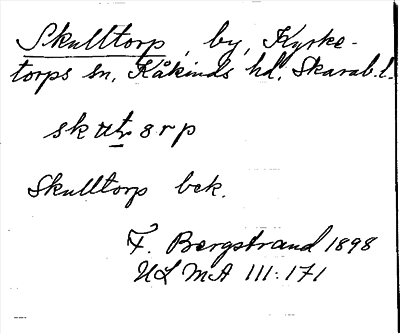 Skulltorp, by, Kyrke-
torps sn, Kåkinds hd. Skarab. l.
Skulltorp bek.
F. Bergstrand 1898
ULMA 111:171